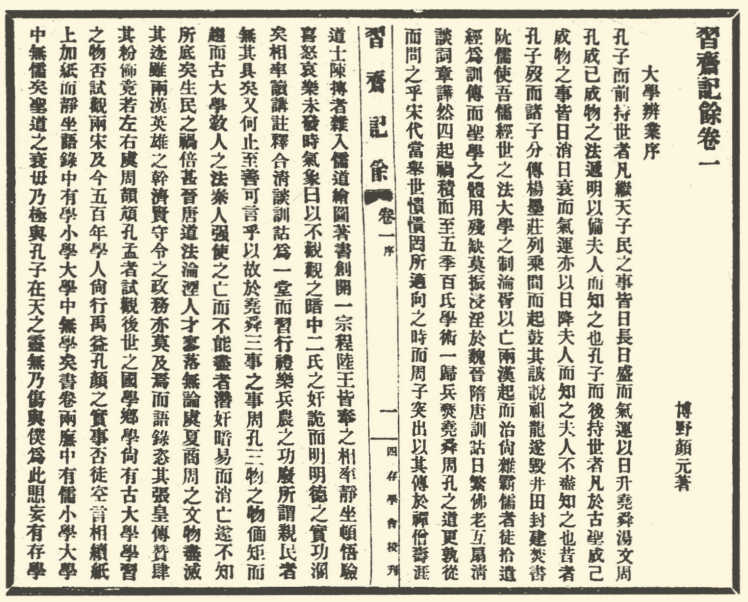 習齋記餘卷一
博野顏元著
大學辨業序
孔子而前持世者凡繼天子民之事皆日長日盛而氣運以日升堯舜湯文周
孔成己成物之法遞明以備夫人而知之也孔子而後持世者凡於古聖成己
成物之事皆日消日衰而氣運亦以日降夫人而知之夫人不盡知之也昔者
孔子歿而諸子分傳楊墨莊列乘間而起鼓其詖說祖龍遂毀井田封建焚書
阬儒使吾儒經世之法大學之制淪胥以亡兩漢起而治尙雜霸儒者徒拾遺
經爲訓傳而聖學之體用殘缺莫振浸淫於魏晉隋唐訓詁日繁佛老互扇清
談詞章譁然四起禍積而至五季百氏學術一歸兵燹堯舜周孔之道更孰從
而問之乎宋代當舉世憒憒罔所適向之時而周子突出以其傳於禪僧壽涯
習齋記餘 卷一 序 一 四存學會校刊
道士陳摶者雜入儒道繪圖著書創開一宗程陸王皆奉之相率靜坐頓悟驗
喜怒哀樂未發時氣象曰以不觀觀之暗中二氏之奸詭而明明德之實功溷
矣相率讀講註釋合清談訓詁爲一堂而習行禮樂兵農之功廢所謂親民者
無其具矣又何止至善可言乎以故於堯舜三事之事周孔三物之物偭矩而
趨而古大學敎人之法秦人强使之亡而不能盡者潛奸暗易而消亡遂不知
所底矣生民之禍倍甚晉唐道法淪湮人才寥落無論虞夏商周之文物盡滅
其迹雖兩漢英雄之幹濟賢守令之政務亦莫及焉而語錄恣其張皇傳贊肆
其粉飾竟若左右虞周頡頏孔孟者試觀後世之國學鄕學尙有古大學學習
之物否試觀兩宋及今五百年學人尙行禹益孔顏之實事否徒空言相續紙
上加紙而靜坐語錄中有學小學大學中無學矣書卷兩廡中有儒小學大學
中無儒矣聖道之衰毋乃極與孔子在天之靈無乃傷與僕爲此思妄有存學